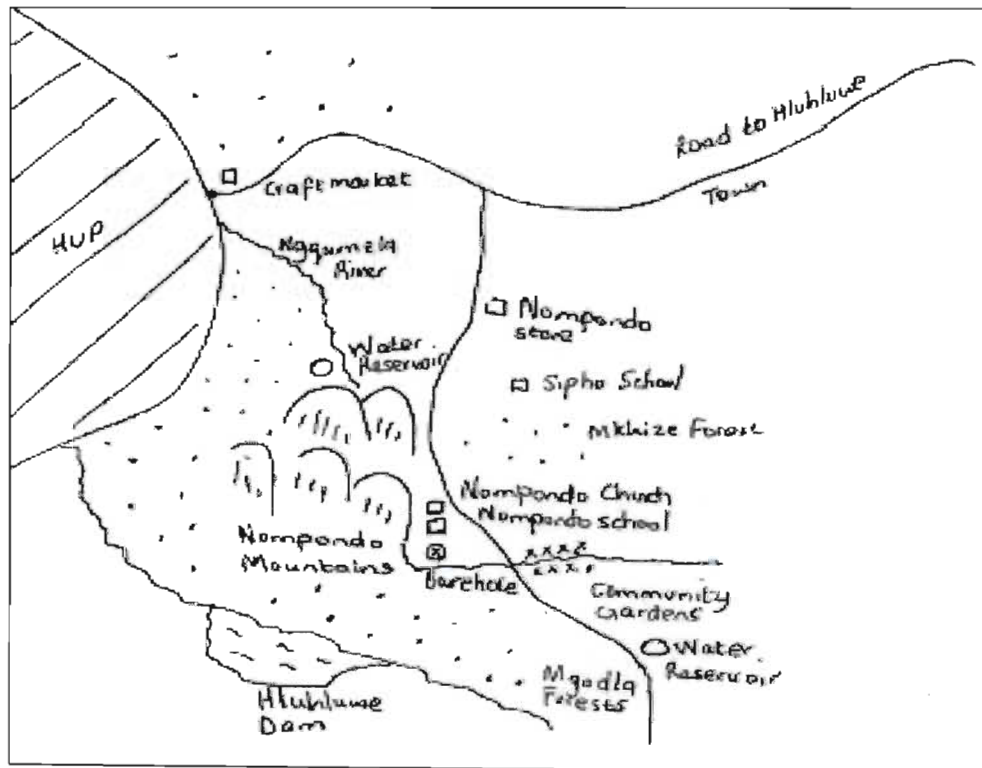 Road to Hluhluwe
Town
Craft market
HUP
Nqqumela
River
Nompondo
store
Water
Reservoir
Sipho School
Mkhize Forest
Nompondo Church
Nompondo school
Nompondo
Mountains
borehole
Community
Gardens
Water
Reservoir
Mgodla
Forests
Hluhluwe
Dam